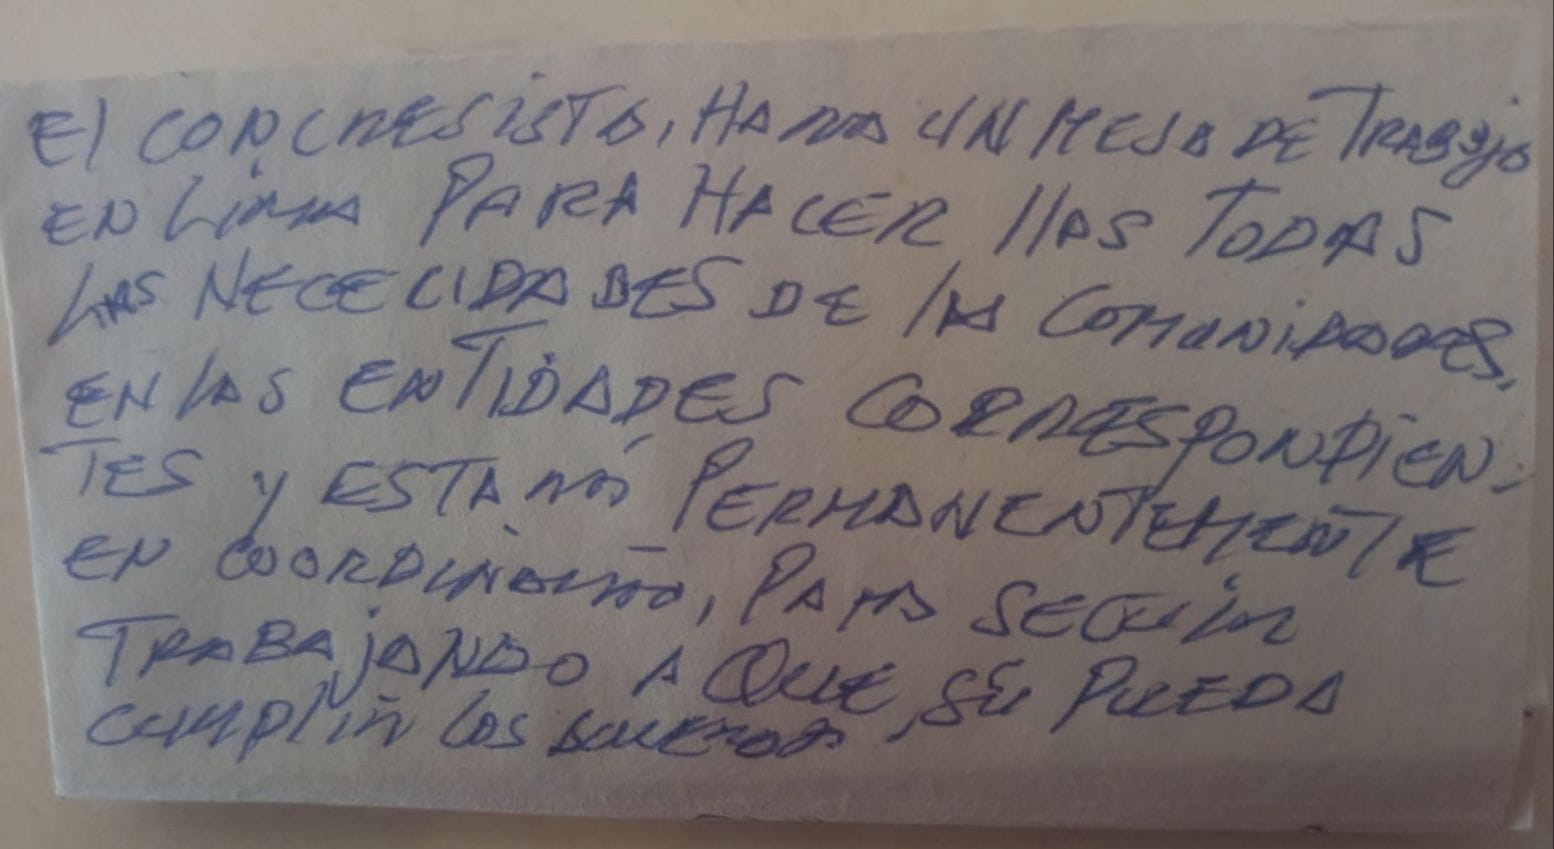 El CONGRESISTA, HARA UN MESA DE TRABAJO
EN LIMA PARA HACER llAS TODAS
LAS NECECIDADES DE lAS COMUNIDADES,
EN lAS ENTIDADES CORRESPONDIEN-
TES y ESTARA PERMANENTEMENTE
EN COORDINACION, PARA SEGUIR
TRABAJANDO A QUE, SE PUEDA
CUMPLIR LOS ACUERDOS